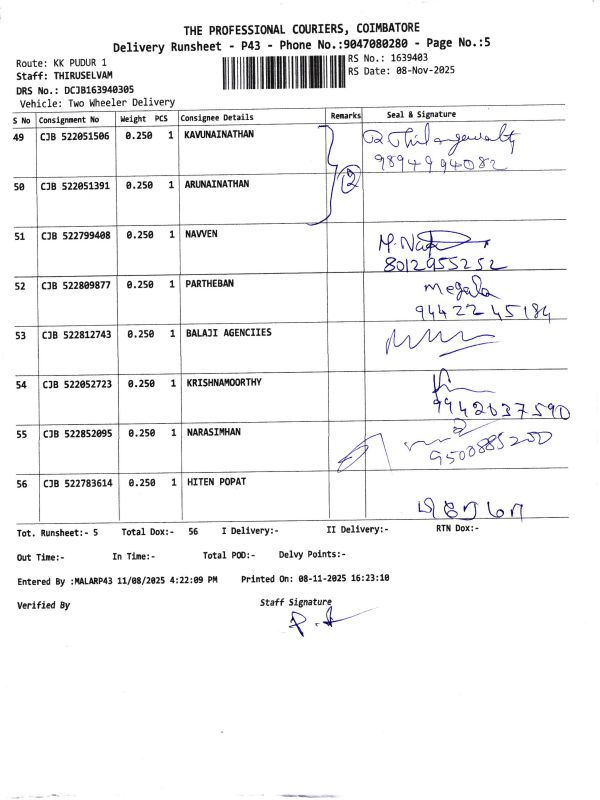 THE PROFESSIONAL COURIERS, COIMBATORE
Delivery Runsheet - P43 - Phone No.:9047080280 - Page No.:5
Route: KK PUDUR 1
RS No.: 1639403
Staff: THIRUSELVAM
RS Date: 08-Nov-2025
DRS No.: DCJB163940305
Vehicle: Two Wheeler Delivery
S No Consignment No Weight PCS Consignee Details Remarks Seal & Signature
49 CJB 522051506 0.250 1 KAVUNAINATHAN
9894994082
50 CJB 522051391 0.250 1 ARUNAINATHAN 2
51 CJB 522799408 0.250 1 NAVVEN
8012955252
52 CJB 522809877 0.250 1 PARTHEBAN megala
94422 45184
53 CJB 522812743 0.250 1 BALAJI AGENCIIES
54 CJB 522052723 0.250 1 KRISHNAMOORTHY
9942037590
55 CJB 522852095 0.250 1 NARASIMHAN
9500885200
56 CJB 522783614 0.250 1 HITEN POPAT
Tot. Runsheet:- 5 Total Dox:- 56 I Delivery:- II Delivery:- RTN Dox:-
Out Time:- In Time:- Total POD:- Delvy Points:-
Entered By :MALARP43 11/08/2025 4:22:09 PM Printed On: 08-11-2025 16:23:10
Verified By Staff Signature